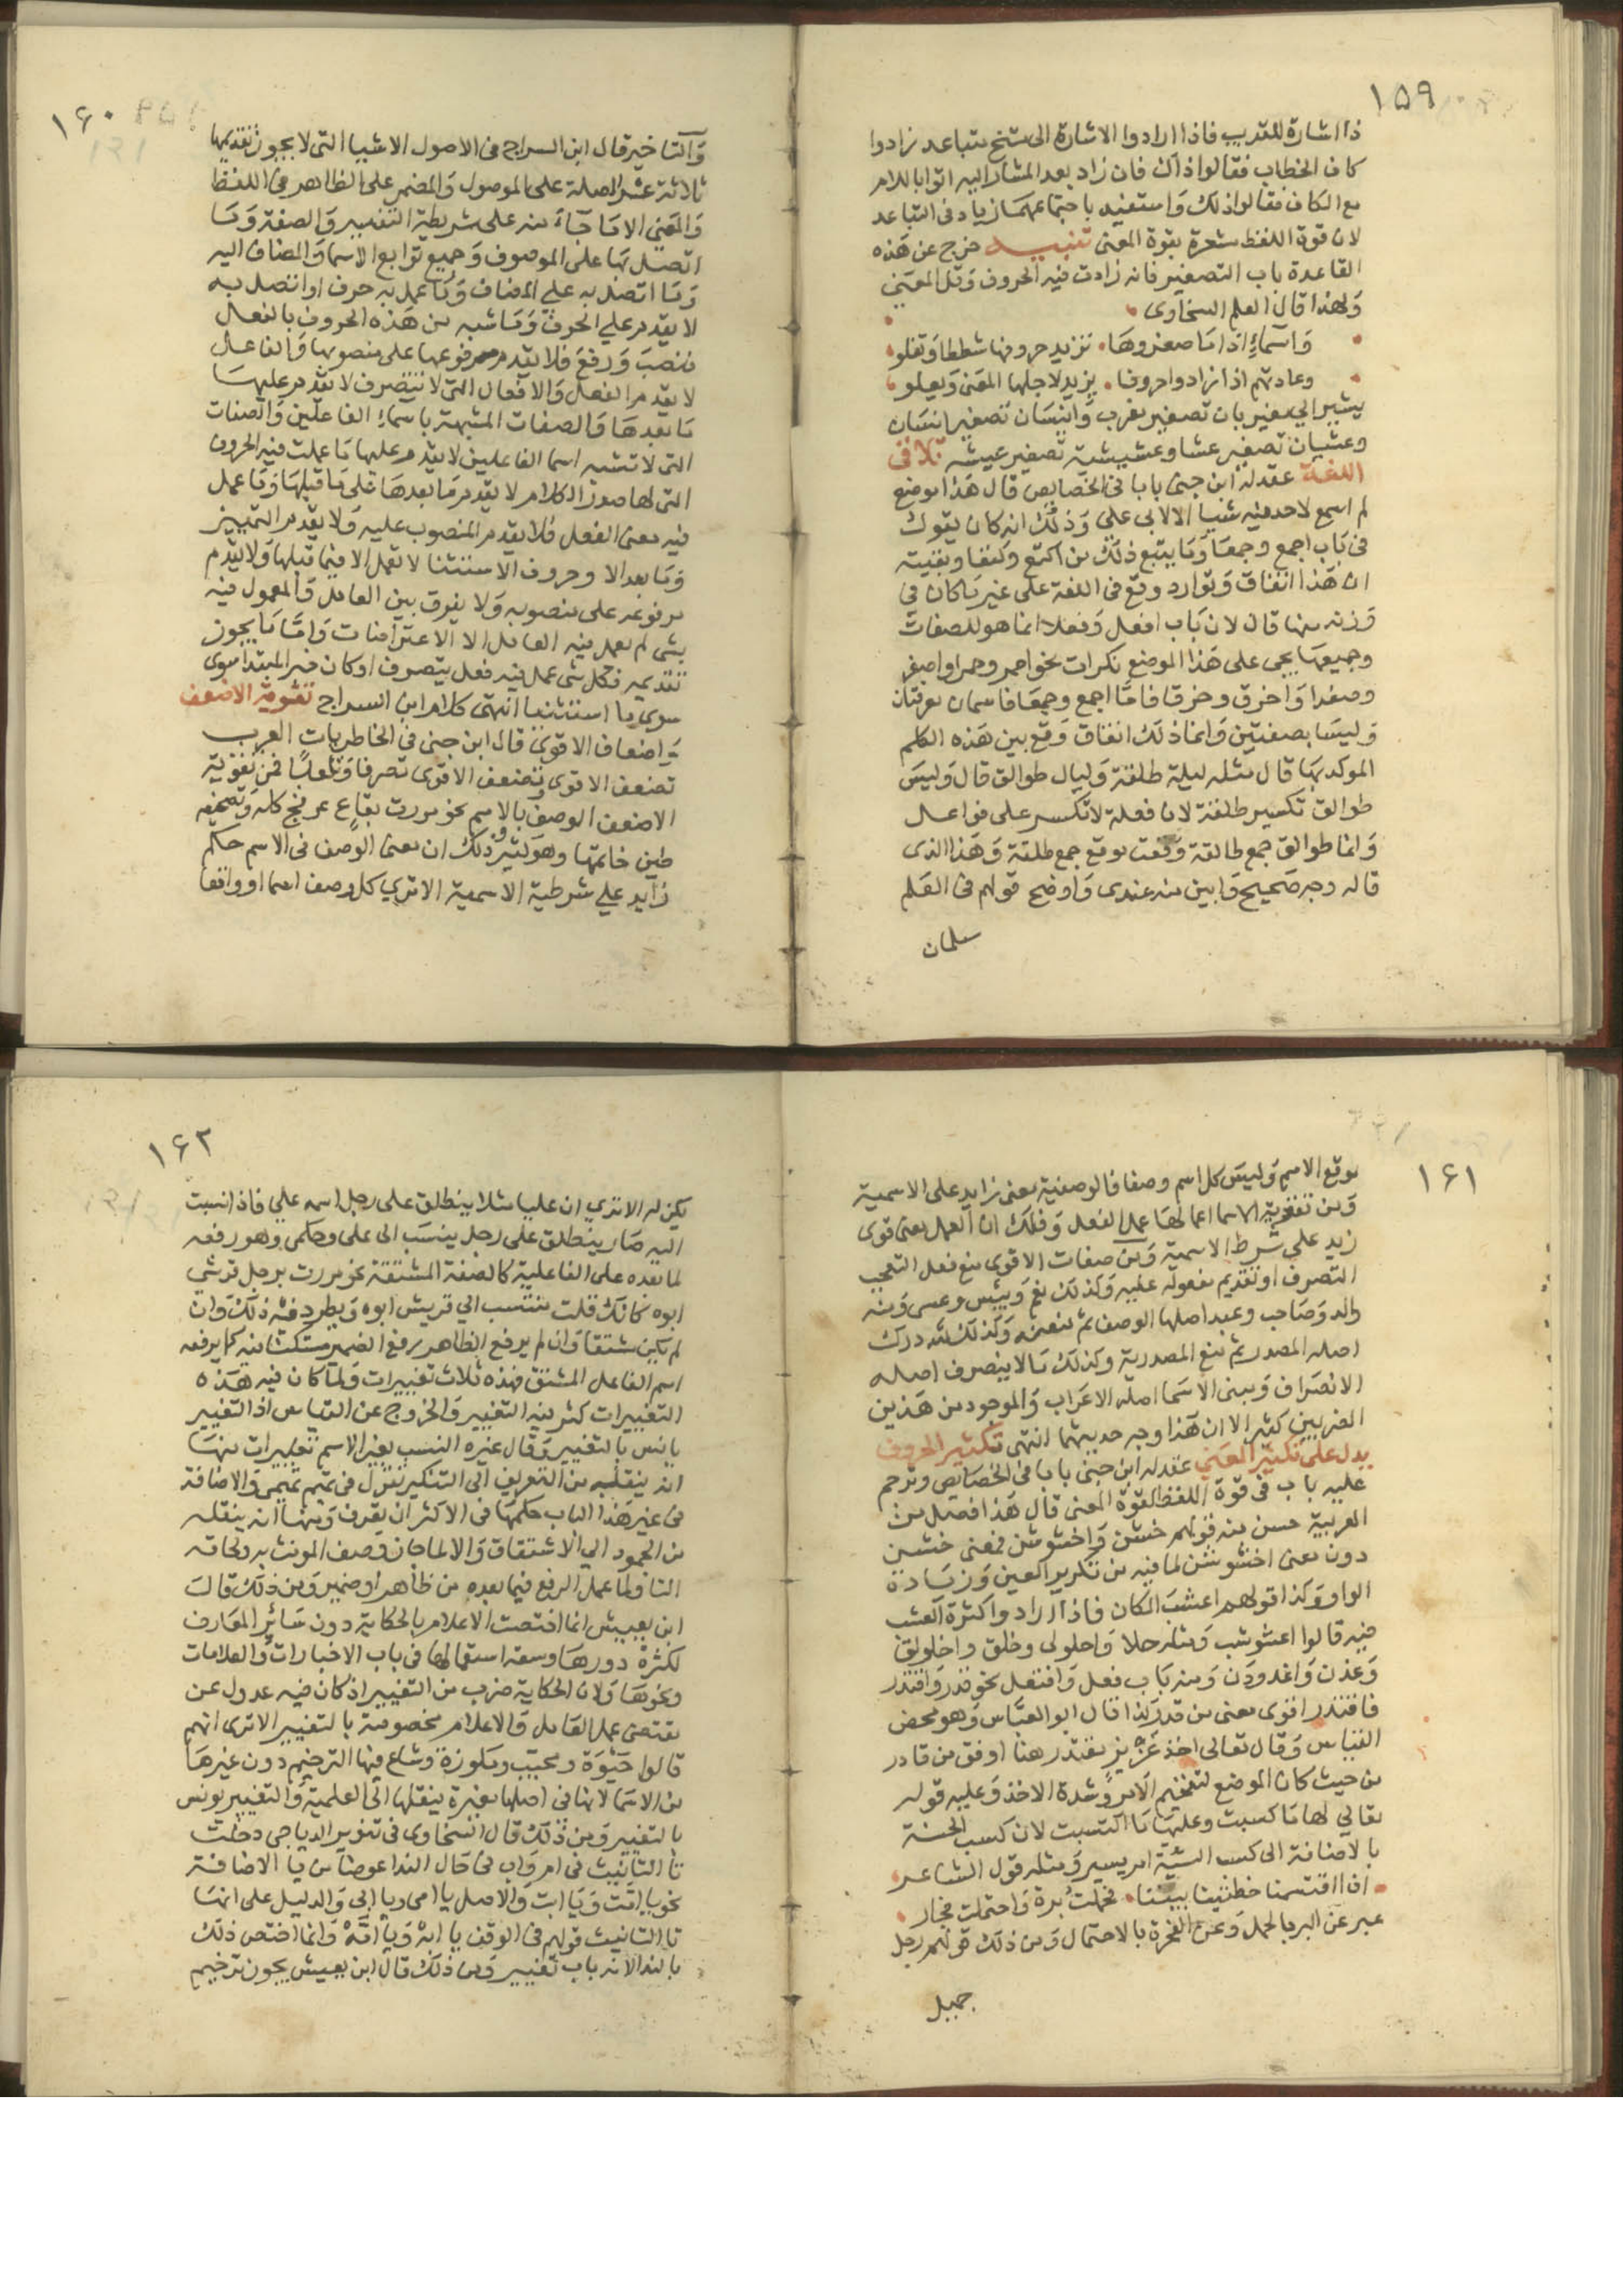 ١٥٩
ذا اشارة للقريب فاذا ارادوا الاشارة الى شخ متباعد زادوا
كاف الخطاب فقالوا ذاك فان زاد بعد المشار اليه اتوا باللام
مع الكاف فقالوا ذلك وَاستفيد باجتماعهمَا زياد فى التباعد
لان قوة اللفظ مشعرة بقوة المعنى تنبيـــه خرج عن هَذه
القاعدة باب التصغير فانه زادت فيه الحروف وَقل المعنى
وَلهذا قال العلم السخاوى
وَاسمَاءٍ اذا مَا صغروهَا تزيد حروفها شططا وَتعلو
وعادتهم اذا زادوا حروفا يزيد لاجلها المعنى وَيعلو
يشير الى مغير بان تصغير مغرب وَانيسَان تصغير انسَان
وعشيان تصغير عشا وعشيشية تصغير عيشه تلاقى
اللغة عقد له ابن جنى بابا فى الخصايص قال هَذا موضع
لم اسمع لاحد فيه شيا الا لابى على وَذلك انه كان يقول
فى بَاب اجمع وجمعَا وَمَا يتبع ذلك من اكتع وكتعا وبقيته
ان هَذا اتفاق وَتوارد وقع فى اللغة على غير مَا كان فى
وَزنه منها قال لان بَاب افعل وَفعلا انما هو للصفات
وجميعهَا يجى على هَذا الموضع نكرات نحو احمر وحمرا واصفر
وصفرا وَاخرق وخرقا فامَّا اجمع وجمعَا فاسمان معرفتان
وَليسَا بصفتين وَانما ذلك اتفاق وَقع بين هَذه الكلم
الموكد بهَا قال مثله ليلة طلقة وَليال طوالق قال وَليسَ
طوالق تكسير طلقة لان فعلة لا تكسر على فواعل
وَانما طوالق جمع طالقة وَقعت موقع جمع طلقة وَهَذا الذى
قاله وجه صَحيح وَابين منه عندى وَاوضح قولهم فى العَلم
سلمان
١۶٠
وَالتاخير قال ابن السراج فى الاصول الاشيا التى لا يجوز تقديمها
ثلاثة عشر الصلة على الموصول وَالمضمر على الظاهر فى اللفظ
وَالمعنى الا مَا جَاءَ منه على شريطة التفسير وَالصفة وَمَا
اتصَل بهَا على الموصوف وَجميع توَابع الاسما وَالمضاف اليه
وَمَا اتصَل به على المضاف وَمَا عمل به حرف او اتصل به
لا يقدم على الحرف وَمَا شبه من هَذه الحروف بالفعل
فنصَب وَرفعَ فلا يقدم مرفوعها على منصوبها وَالفاعل
لا يقدم الفعل وَالافعال التى لا تتصرف لا يقدم عليهَا
مَا بعدهَا وَالصفات المشبهة باسمَاءِ الفاعلين وَالصفات
التى لا تشبه اسما الفاعلين لا يقدم عليها مَا عملت فيه الحروف
التى لها صدر الكلام لا يقدم مَا بعدهَا على مَا قبلهَا وَمَا عمل
فيه معنى الفعل فلا يقدم المنصوب عليه وَلا يقدم التمييز
وَمَا بعد الا وحروف الاستثنا لا تعمل الا فيما قبلها وَلا يقدم
مرفوعه على منصوبه وَلا يفرق بين العامل وَالمعمول فيه
بشى لم يعمل فيه العامل الا الاعتراضات وَامَّا مَا يجوز
تقديمه فكل شى عمل فيه فعل يتصرف او كان خبر المبتدا سوى
سوى ما استثنينا انتهى كلام ابن السراج تقوية الاضعف
وَاضعاف الاقوى قال ابن جنى فى الخاطريات العرب
تضعف الاقوى وتضعف الاقوى تصرفا وَتلعبًا فمن تقوية
الاضعف الوصف بالاسم نحو مررت بقاع عرفج كله وَبصحيفه
طين خاتمها وهو كثير وذلك ان معنى الوصف فى الاسم حكم
زايد على شرطية الاسمية الا ترى كل وصف اسما او واقعا
١۶١
موقع الاسم وَليسَ كل اسم وصفا فالوصفية معنى زايد على الاسمية
وَمن تقوية الاسما اعمالهَا عمل الفعل وَذلك ان العمل معنى قوى
زيد على شرط الاسمية وَمن صفات الاقوى منع فعل التعجب
التصرف او تقديم مفعوله عليه وَكذلك نعم وَبئس وعسى وَمنه
والد وَصَاحب وعبد اصلها الوصف ثم منعته وَكذلك لله درك
اصله المصدر ثم منع المصدرية وكذلك مَا لا ينصرف اصله
الانصرَاف وَمبنى الاسَما اصله الاعرَاب وَالموجود من هَذين
الضربين كثير الا ان هَذا وجه حديثهما انتهى تكثير الحروف
يدل على تكثير المعنى عقد له ابن جنى بابا فى الخصَايص وترجم
عليه باب فى قوة اللفظ لقوة المعنى قال هَذا فصل من
العربية حسن منه قولهم خشن وَاخشوشن فمعنى خشن
دون معنى اخشوشن لما فيه من تكرير العين وَزيَادة
الواو وَكذا قولهم اعشب المكان فاذا ارادوا كثرة العشب
فيه قالوا اعشوشب وَمثله حلا وَاحلولى وخلق واخلولق
وَغدن وَاغدودن وَمنه بَاب فعل وَافتعل نحو قدر وَاقتدر
فاقتدر اقوى معنى من قدر كذا قال ابو العبَّاس وَهو محض
القياس وَقال تعالى اخذ عَزيز مقتدر هنا اوفق من قادر
من حيث كان الموضع لتفخيم الامر وَشدة الاخذ وَعليه قوله
تعالى لها مَا كسبت وعليهَا مَا اكتسبت لان كسب الحسنة
بالاضافة الى كسب السيئة امر يسير وَمثله قول الشاعر
انا اقتسمنا خطتينا بيننا فحملتُ برة وَاحتملت فجار
عبر عن البر بالحمل وَعن الفجرة بالاحتمال وَمن ذلك قولهم رجل
جميل
١۶٢
يكن له الا ترى ان عليا مثلا ينطلق على رجل اسمه على فاذا نسبت
اليه صَار ينطلق على رجل ينسَب الى على وحكمى وهو رفعه
لما بعده على الفاعلية كالصفة المشتقة نحو مررت برجل قرشى
ابوه كانك قلت منتسب الى قريش ابوه وَيطرد فيه ذلك وَان
لم يكن مشتقا وَان لم يرفع الظاهر رفع الضمير مستكنا فيه كما يرفعه
اسم الفاعل المشتق فهذه ثلاث تغييرات وَلما كان فيه هَذه
التغييرات كثر فيه التغيير وَالخروج عن القياس اذ التغيير
يانس بالتغيير وَقال غيره النسب يغير الاسم تغييرات منهَا
انه ينقله من التعريف الى التنكير تقول فى تميم تميمى وَالاضافة
فى غير هَذا الباب حكمهَا فى الاكثر ان تعرف وَمنها انه ينقله
من الجمود الى الاشتقاق وَالا لما جاز وصف المونث به ولحاقه
التا وَلما عمل الرفع فيما بعده من ظاهر او ضمير وَمن ذلك قالَ
ابن يعيش انما اختصت الاعلام بالحكاية دون سَائر المعَارف
لكثرة دورهَا وسعة استعمالها فى باب الاخبارات وَالعلامات
ونحوهَا وَلان الحكاية ضرب من التغيير اذ كان فيه عدول عن
مقتضى عمل العَامل وَالاعلام مخصوصة بالتغيير الا ترى انهم
قالوا حَيْوَة ومحبب ومكوزة وشاع فيها الترخيم دون غيرهَا
من الاسَما لانها فى اصلها مغيرة بنقلها الى العلمية وَالتغيير يونس
بالتغيير وَمن ذلك قال السخاوى فى تنوير الدياجى دخلت
تا التانيث فى ام وَاب فى حَال الندا عوضا من يا الاضافة
نحو يا امَّت وَيَا ابَت وَالاصل يا امى ويا ابى وَالدليل على انهَا
تا التانيث قولهم فى الوقف يا ابَهْ وَيا امَّهْ وَانما اختص ذلك
بالندا لانه باب تغيير وَمن ذلك قال ابن يعيش يجوز ترخيم